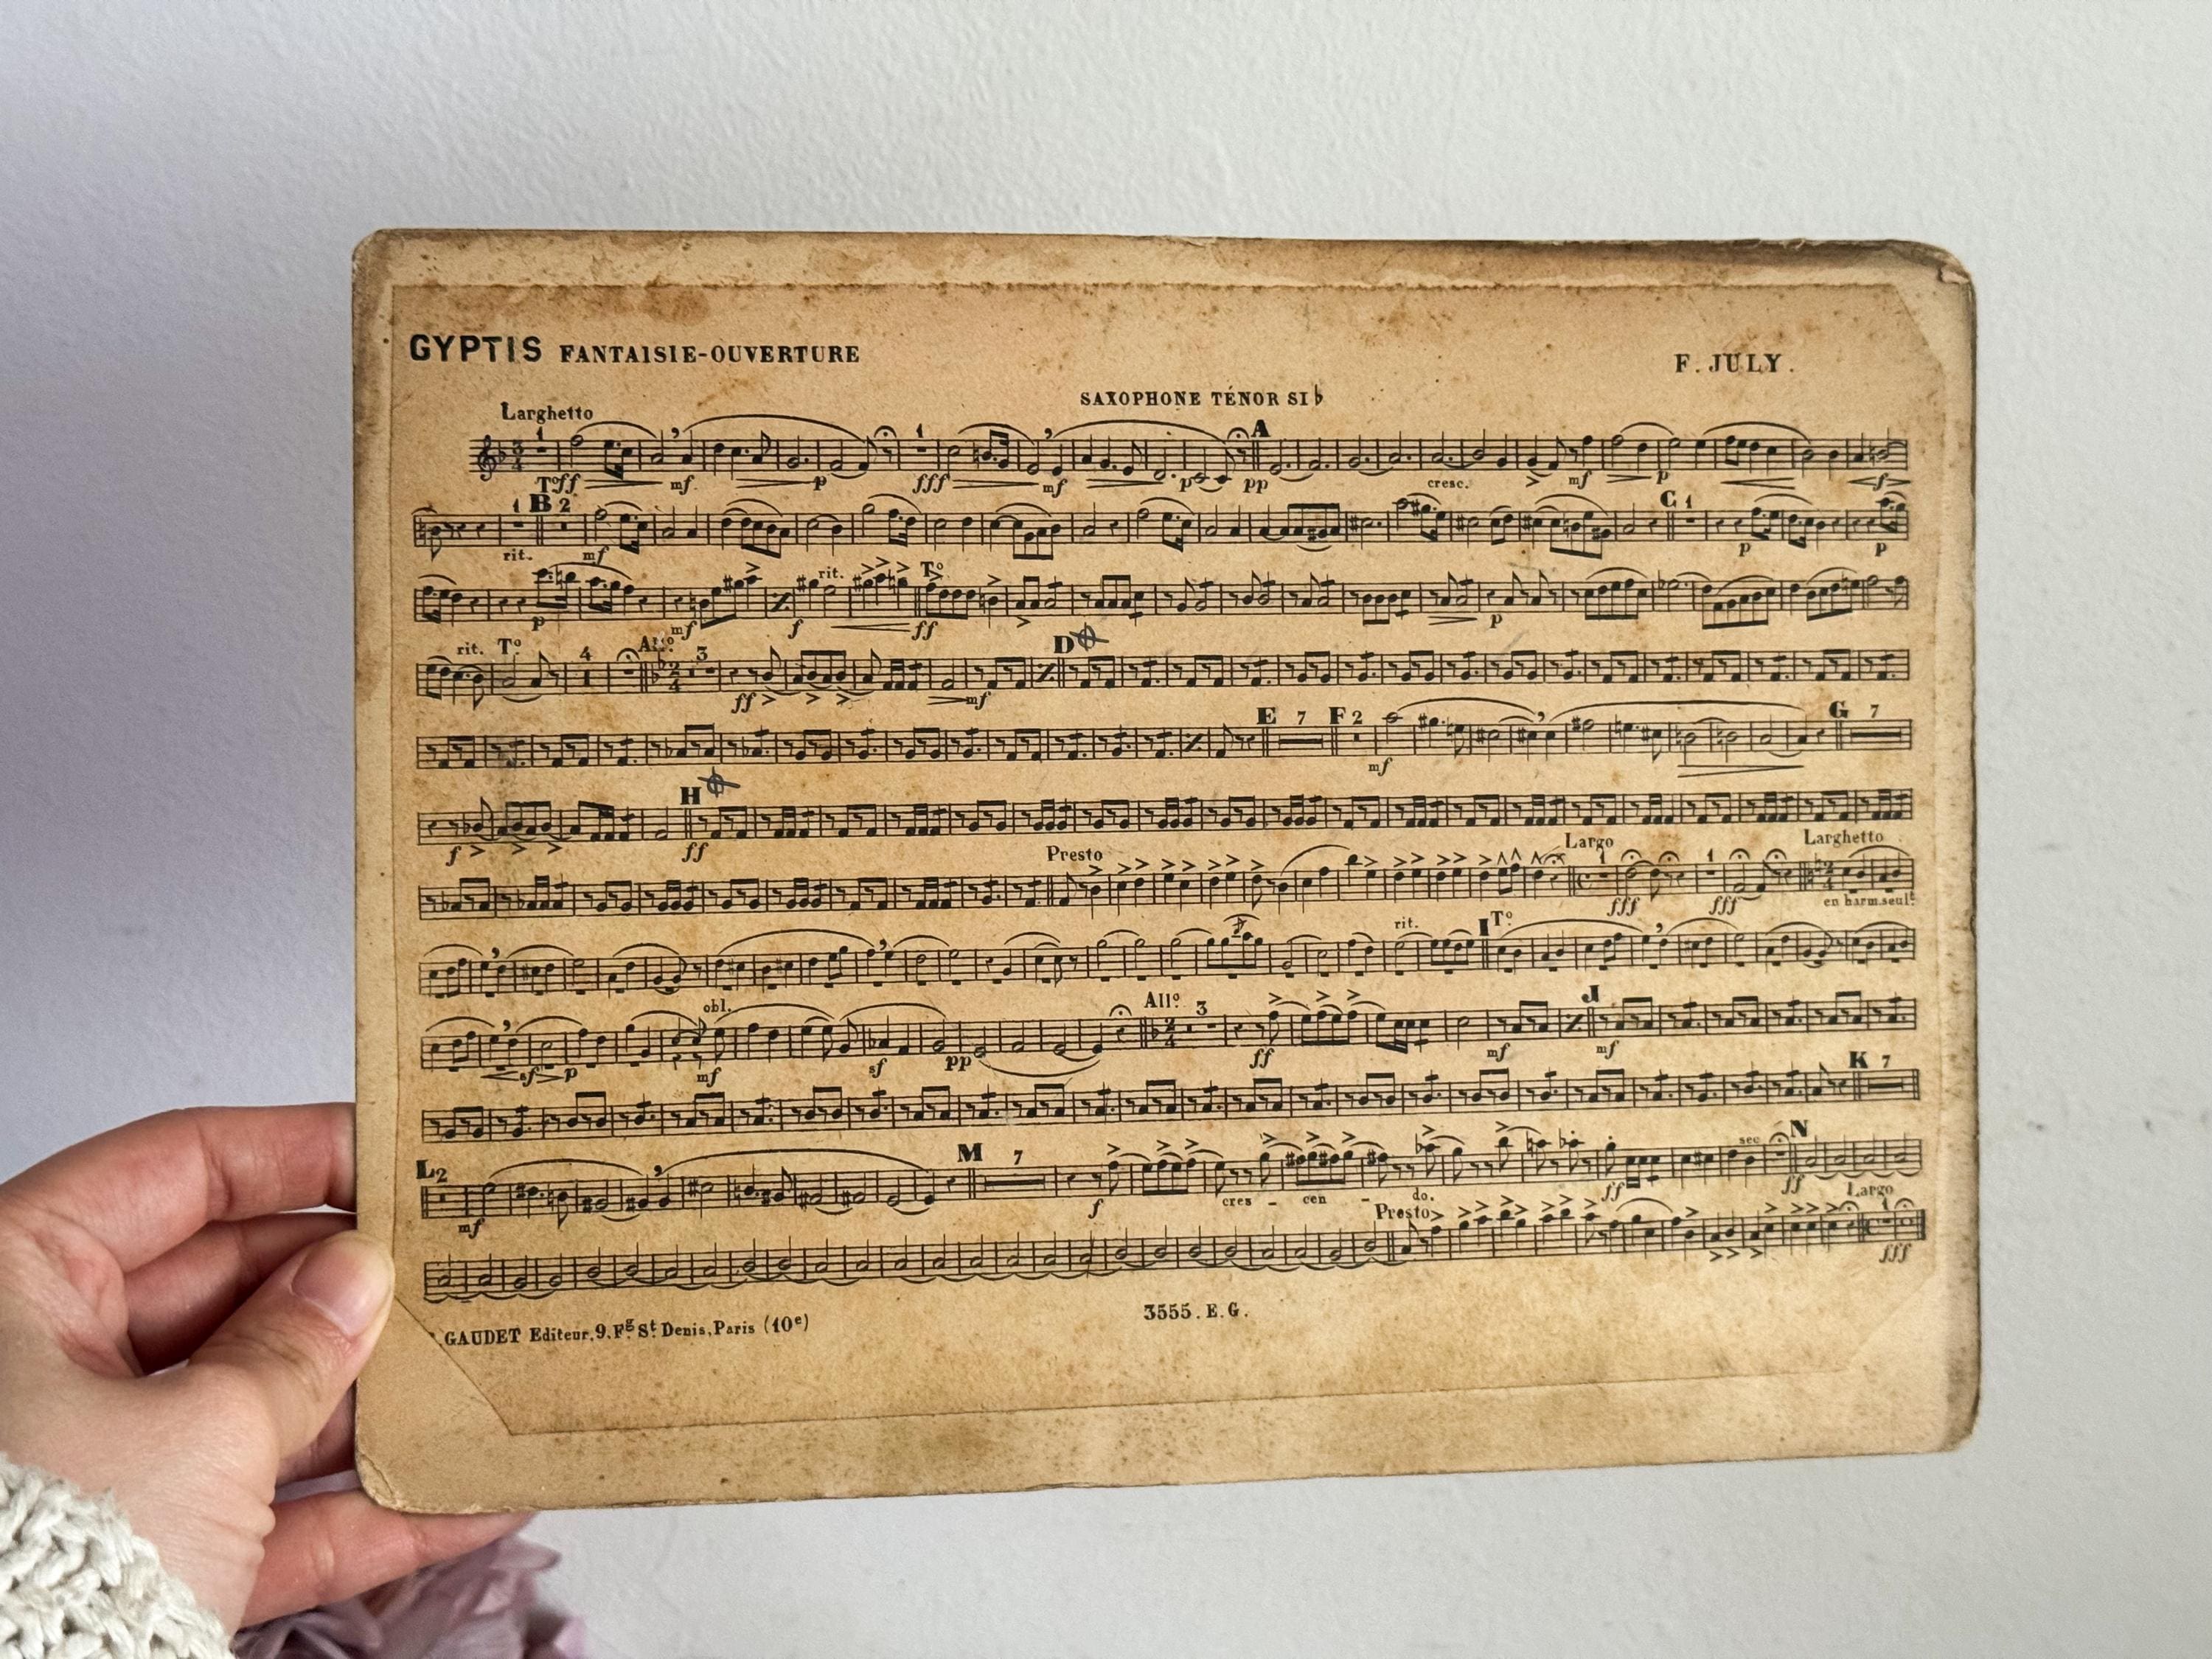 GYPTIS FANTAISIE-OUVERTURE
F. JULY.
SAXOPHONE TÉNOR SI♭
Larghetto
1 1 A
Tº ff mf p fff mf p pp cresc. mf p f
1 B 2 C 1
rit. mf p p
rit. Tº
p mf f ff p
rit. Tº 4 Allº 3 D
ff mf
E 7 F 2 G 7
mf
H
f ff
Presto Largo 1 1 Larghetto
fff fff en harm. seult
rit. I Tº
obl. Allº 3 J
sf p mf sf pp ff mf mf
K 7
L 2 M 7 sec N
mf f cres - cen - do. ff ff
Presto Largo 1
fff
GAUDET Editeur, 9, Fg St Denis, Paris (10e)
3555. E. G.